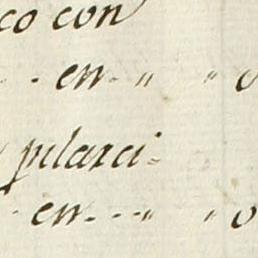 co con
- en - " " o
pilarci-
- en - - - " " o